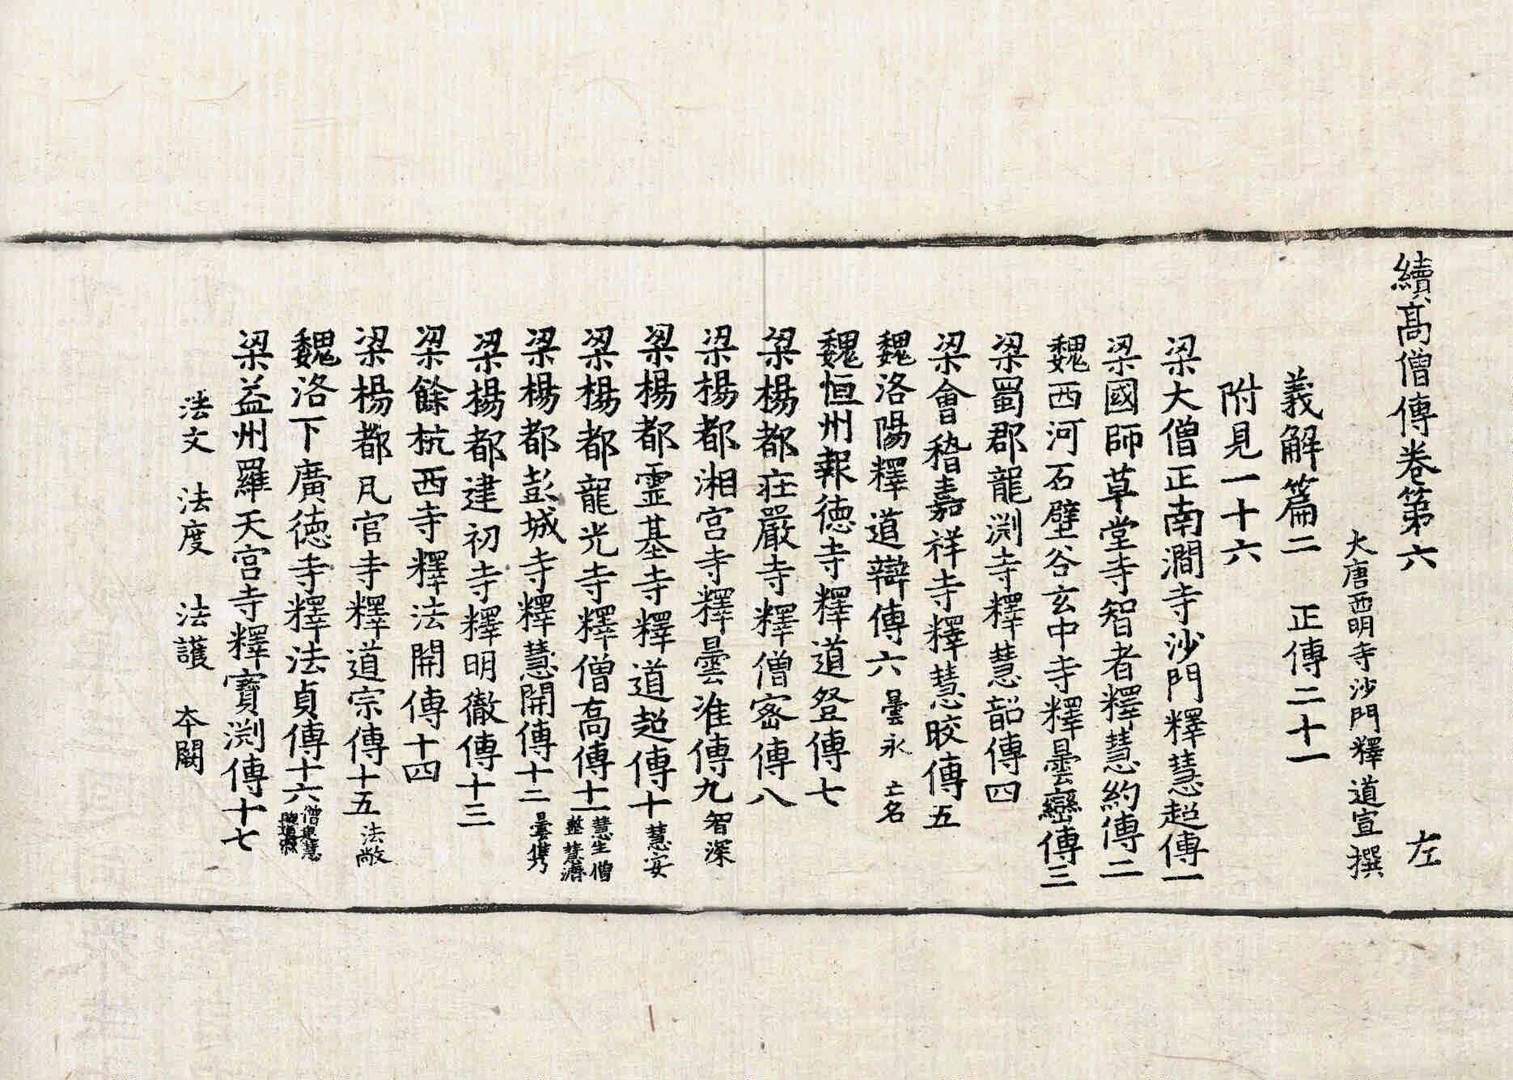 續高僧傳卷第六 左
大唐西明寺沙門釋道宣撰
義解篇二 正傳二十一
附見一十六
梁大僧正南澗寺沙門釋慧超傳一
梁國師草堂寺智者釋慧約傳二
魏西河石壁谷玄中寺釋曇鸞傳三
梁蜀郡龍渕寺釋慧韶傳四
梁會稽嘉祥寺釋慧皎傳五
魏洛陽釋道辯傳六 曇永 亡名
魏恒州報德寺釋道登傳七
梁楊都莊嚴寺釋僧密傳八
梁楊都湘宮寺釋曇准傳九 智深
梁楊都靈基寺釋道超傳十 慧安
梁楊都龍光寺釋僧喬傳十一 慧生 僧整 慧濟
梁楊都彭城寺釋慧開傳十二 曇儁
梁楊都建初寺釋明徹傳十三
梁餘杭西寺釋法開傳十四
梁楊都凡官寺釋道宗傳十五 法敞
魏洛下廣德寺釋法貞傳十六 僧建 慧
梁益州羅天宮寺釋寶渕傳十七
法文 法度 法護 夲闕